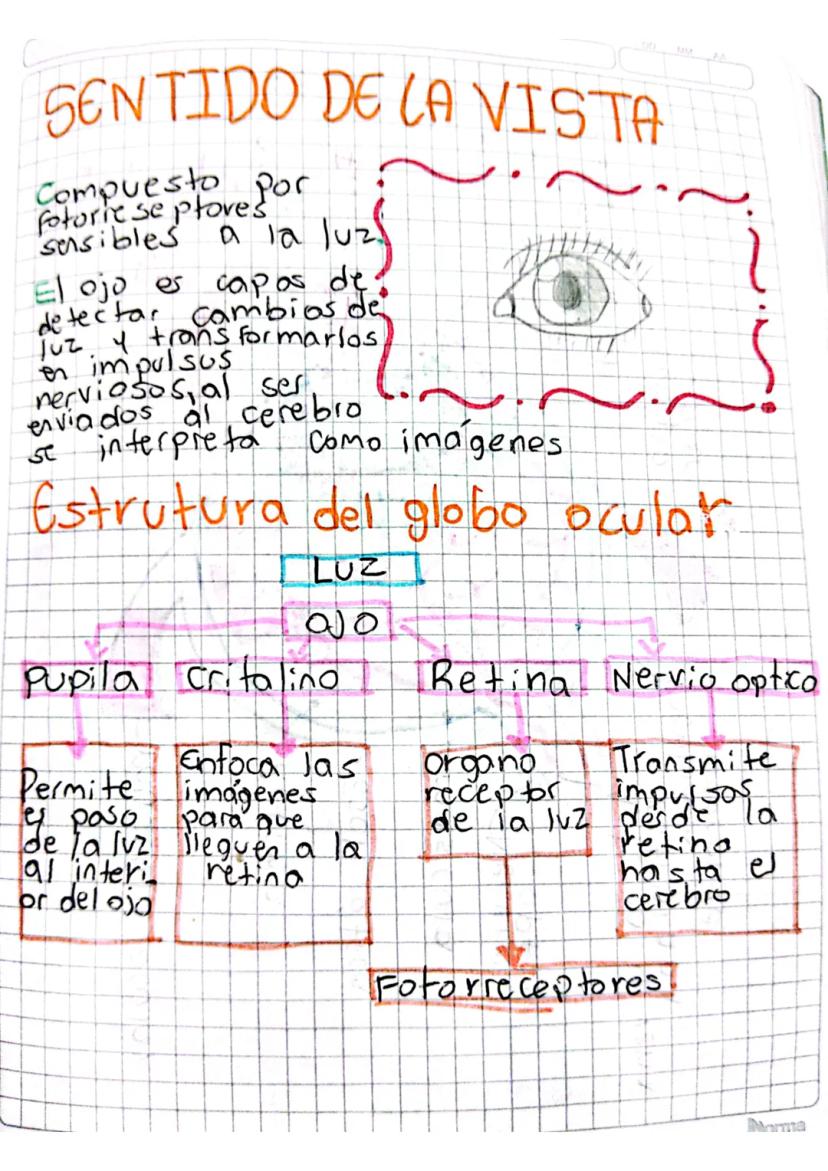 SENTIDO DE LA VISTA
Compuesto por
fotorreseptores
sensibles a la luz
El ojo es capas de
detectar cambios de
luz y transformarlos
en impulsus
nerviosos, al ser
enviados al cerebro
se interpreta como imágenes
Estrutura del globo ocular
LUZ
OJO
Pupila
Critalino
Retina
Nervio optico
Permite
el paso
de la luz
al interi_
or del ojo
Enfoca las
imágenes
para que
lleguen a la
retina
organo
receptor
de la luz
Transmite
impulsos
desde la
retina
hasta el
cerebro
Fotorreceptores
Norma